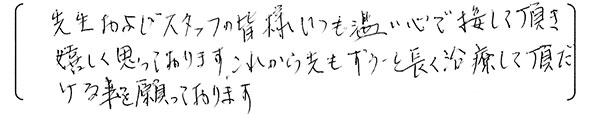 先生およびスタッフの皆様いつも温い心で接して頂き
嬉しく思っております。これから先もずうーと長く治療して頂だ
ける事を願っております